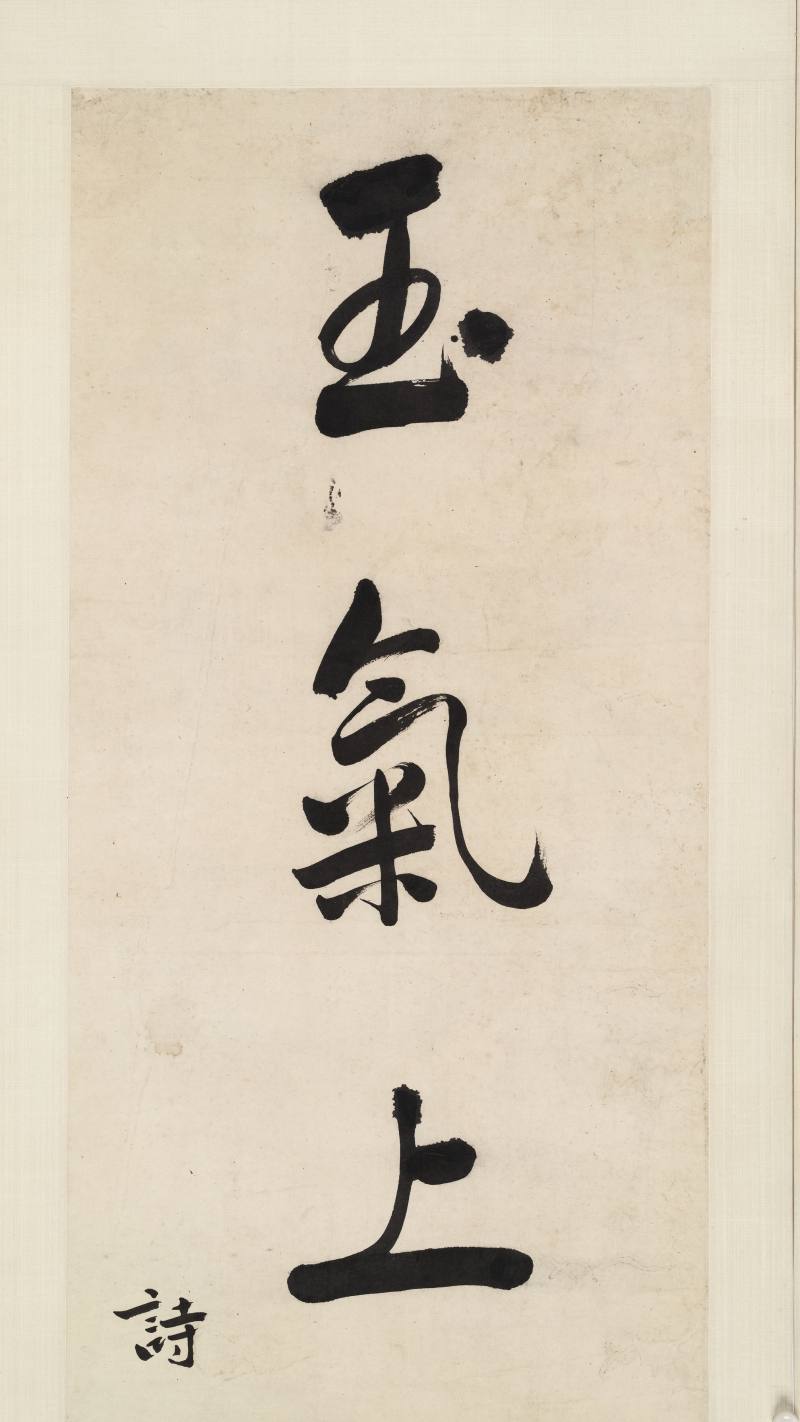 玉氣上
詩